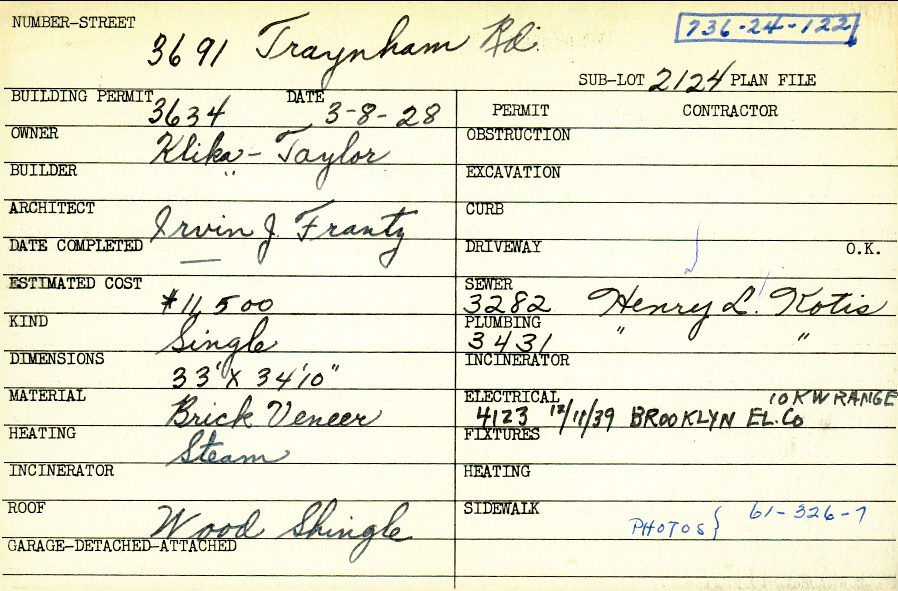 NUMBER-STREET
3691 Traynham Rd.
736-24-122
SUB-LOT 2124 PLAN FILE
BUILDING PERMIT 3634 DATE 3-8-28
OWNER Klika - Taylor
BUILDER "
ARCHITECT Irvin J. Frantz
DATE COMPLETED —
ESTIMATED COST $11,500
KIND Single
DIMENSIONS 33' X 34'10"
MATERIAL Brick Veneer
HEATING Steam
INCINERATOR
ROOF Wood Shingle
GARAGE-DETACHED-ATTACHED
PERMIT CONTRACTOR
OBSTRUCTION
EXCAVATION
CURB
DRIVEWAY O.K.
SEWER 3282 Henry L. Kotis
PLUMBING 3431 " "
INCINERATOR
ELECTRICAL 10 KW RANGE
4123 12/11/39 BROOKLYN EL. Co
FIXTURES
HEATING
SIDEWALK
PHOTOS } 61-326-7